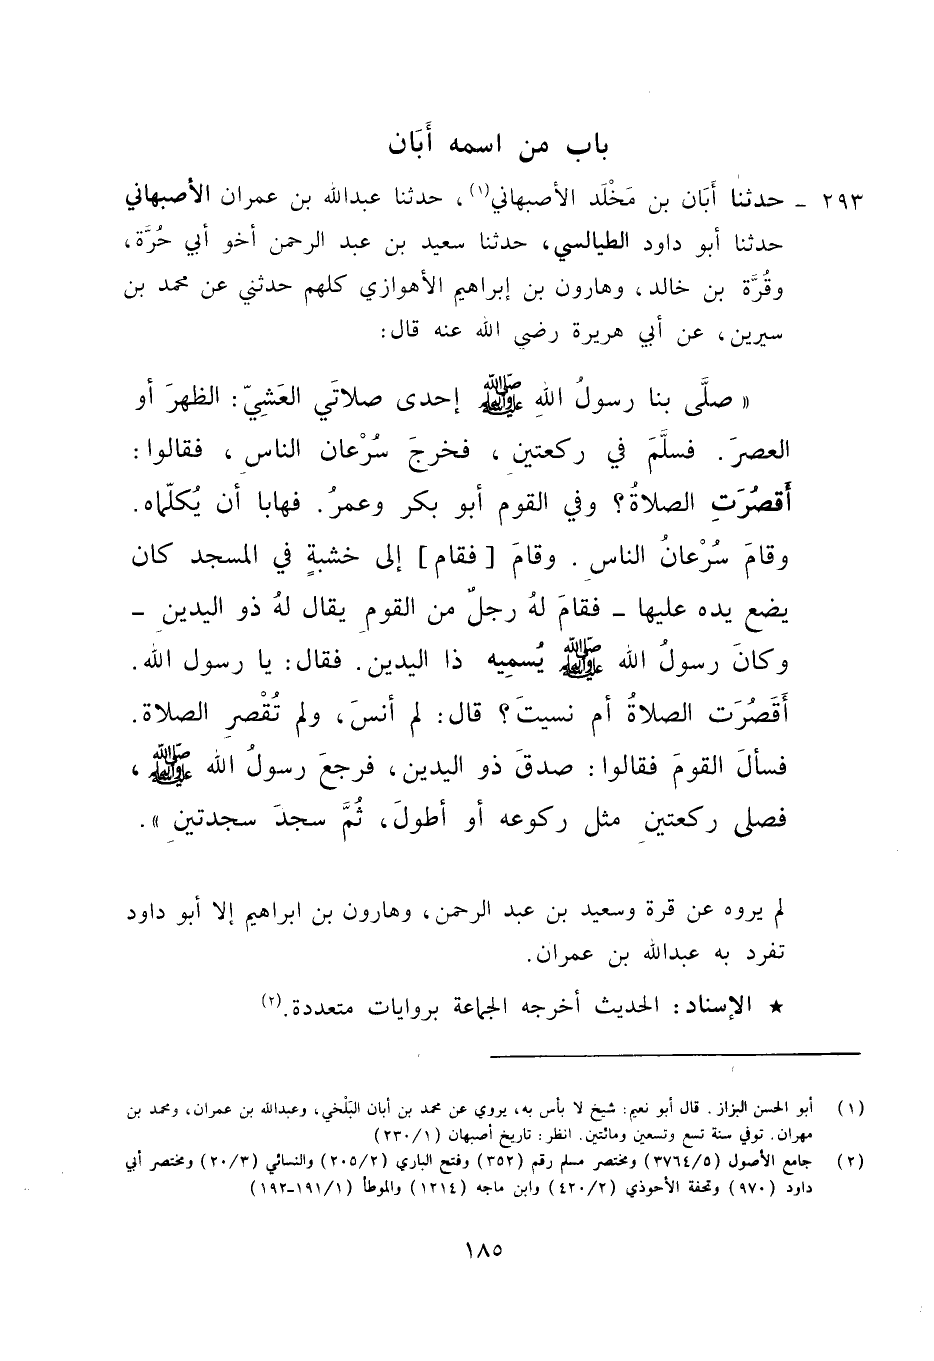 باب من اسمه أَبَان
٢٩٣ - حدثنا أَبَان بن مَخْلَد الأصبهاني(١)، حدثنا عبدالله بن عمران الأصبهاني
حدثنا أبو داود الطيالسي، حدثنا سعيد بن عبد الرحمن أخو أبي حُرَّة،
وقُرَّة بن خالد، وهارون بن إبراهيم الأهوازي كلهم حدثني عن محمد بن
سيرين، عن أبي هريرة رضي الله عنه قال:
« صلَّى بنا رسولُ اللهِ ﷺ إحدى صلاتَي العَشِيّ: الظهرَ أو
العصرَ. فسلَّمَ في ركعتينِ، فخرجَ سُرْعان الناسِ، فقالوا:
أَقصُرَتِ الصلاةُ؟ وفي القوم أبو بكر وعمرُ. فهابا أن يُكلّماه.
وقامَ سُرْعانُ الناسِ. وقامَ [فقام] إلى خشبةٍ في المسجد كان
يضع يده عليها - فقامَ لهُ رجلٌ من القومِ يقال لهُ ذو اليدينِ -
وكانَ رسولُ الله ﷺ يُسمِيه ذا اليدين. فقال: يا رسول الله.
أَقَصُرَت الصلاةُ أم نسيتَ؟ قال: لم أنسَ، ولم تُقْصرِ الصلاة.
فسألَ القومَ فقالوا: صدقَ ذو اليدين، فرجعَ رسولُ الله ﷺ،
فصلى ركعتينِ مثل ركوعه أو أطولَ، ثُمَّ سجدَ سجدتينِ ».
لم يروه عن قرة وسعيد بن عبد الرحمن، وهارون بن ابراهيم إلا أبو داود
تفرد به عبدالله بن عمران.
★ الإسناد: الحديث أخرجه الجماعة بروايات متعددة.(٢)
(١) أبو الحسن البزاز. قال أبو نعيم: شيخ لا بأس به، يروي عن محمد بن أبان البَلْخي، وعبدالله بن عمران، ومحمد بن
مهران. توفي سنة تسع وتسعين ومائتين. انظر: تاريخ أصبهان (٢٣٠/١)
(٢) جامع الأصول (٣٧٦٤/٥) ومختصر مسلم رقم (٣٥٢) وفتح الباري (٢٠٥/٢) والنسائي (٢٠/٣) ومختصر أبي
داود (٩٧٠) وتحفة الأحوذي (٤٢٠/٢) وابن ماجه (١٢١٤) والموطأ (١٩١/١-١٩٢)
١٨٥